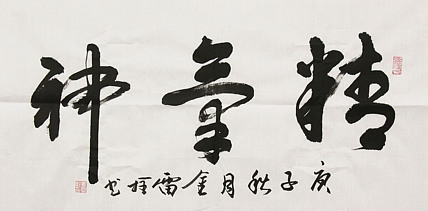 精氣神
庚子秋月金雷〿书